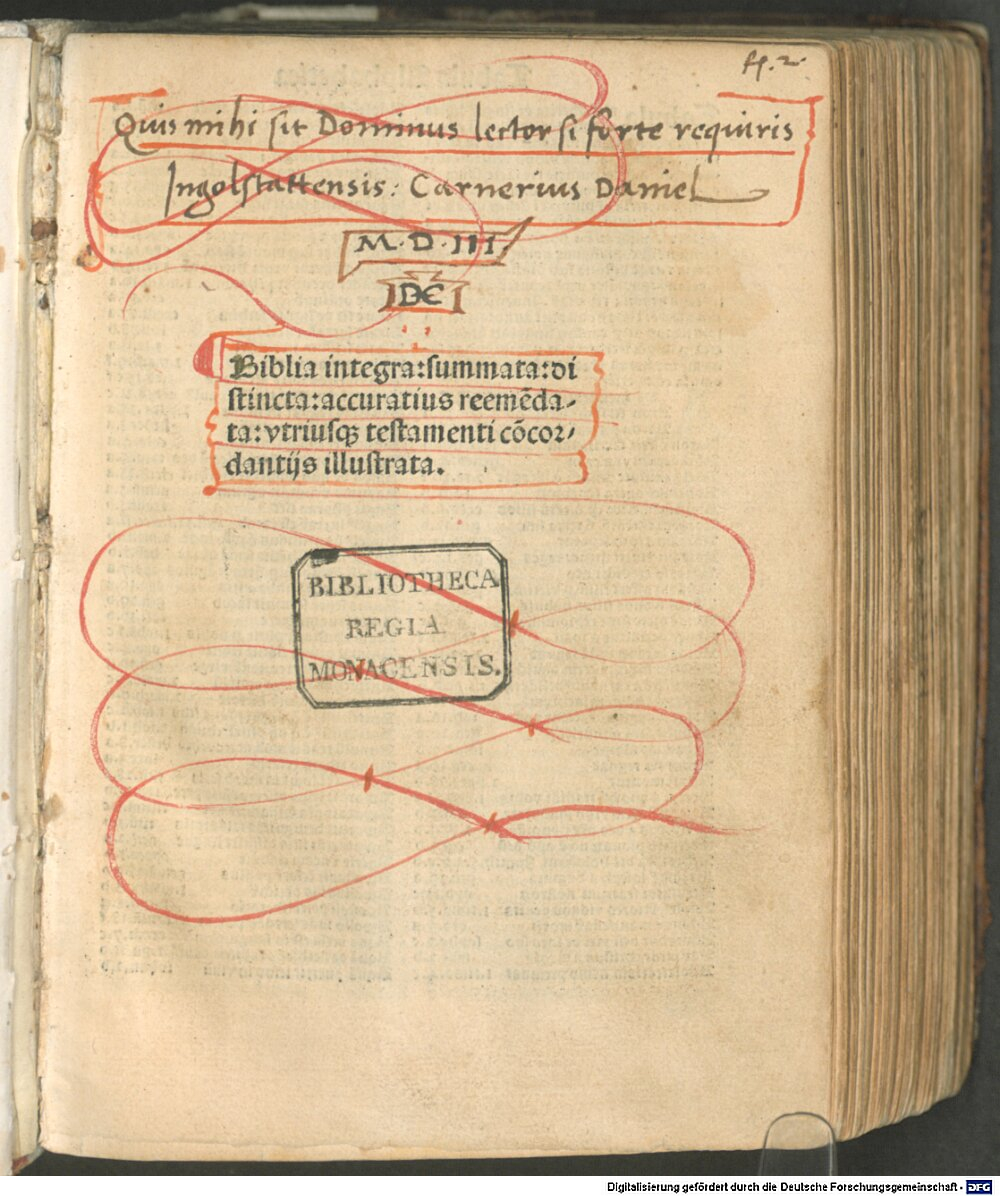 ff. 2
Quis mihi sit Dominus lector si forte requiris
Ingolstattensis: Carnerius Daniel
M·D·III·
DC
Biblia integra:summata:di
stincta:accuratius reemēda-
ta:vtriusqꝫ testamenti cōcor-
dantijs illustrata.
BIBLIOTHECA
REGIA
MONACENSIS.
Digitalisierung gefördert durch die Deutsche Forschungsgemeinschaft - DFG